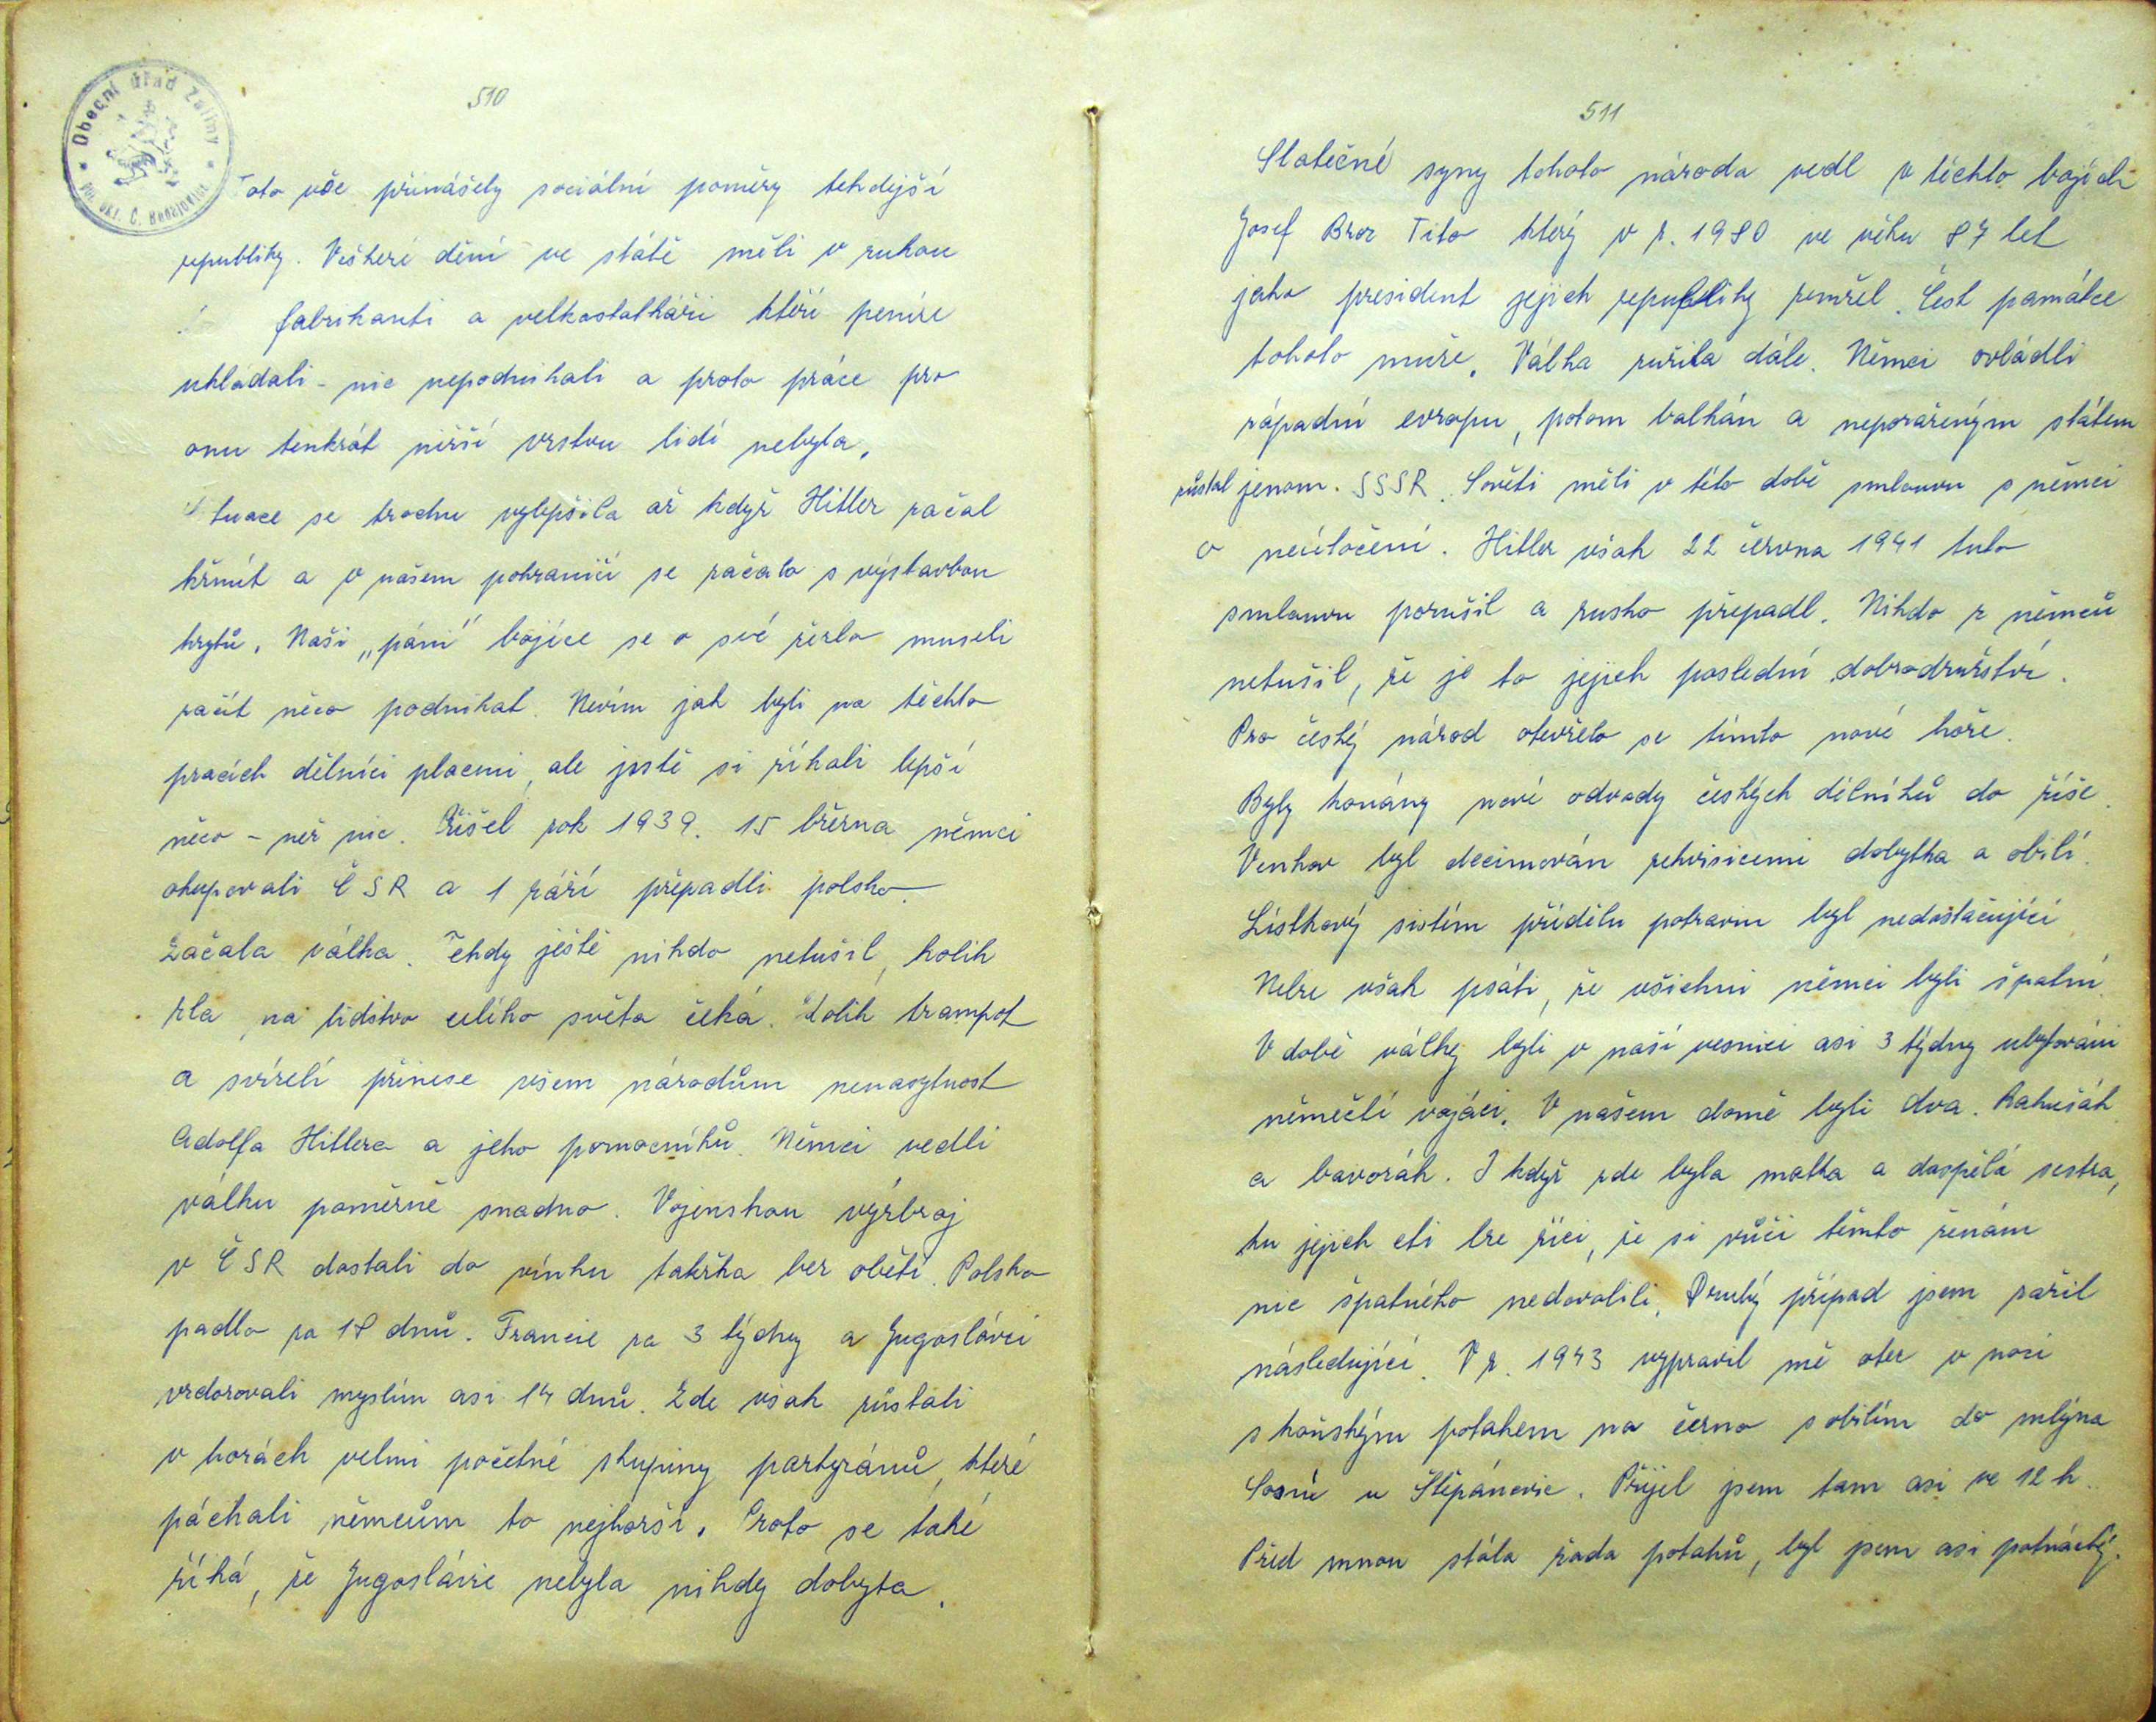 510
Obecní úřad Zaliny
Toto vše přinášely sociální poměry tehdejší
republiky. Veškeré dění ve státě měli v rukou
fabrikanti a velkostatkáři kteří peníze
ukládali - nic nepodnikali a proto práce pro
onu tenkrát nižší vrstvu lidí nebyla.
Situace se trochu vylepšila až když Hitler začal
křmít a v našem pohraničí se začalo s výstavbou
krytů. Naši „páni" bojíce se o své žezlo museli
začít něco podnikat. Nevím jak byli na těchto
pracích dělníci placeni, ale jistě si říkali lepší
něco - než nic. Přišel rok 1939. 15 března němci
okupovali ČSR a 1 září přepadli polsko.
Začala válka. Tehdy ještě nikdo netušil, kolik
zla na lidstvo celého světa čeká. Kolik trampot
a svízelí přinese všem národům nenasytnost
Adolfa Hitlera a jeho pomocníků. Němci vedli
válku poměrně snadno. Vojenskou výzbroj
v ČSR dostali do vínku takřka bez obětí. Polsko
padlo za 18 dnů. Francie za 3 týdny a Jugoslávci
vzdorovali myslím asi 14 dnů. Zde však zůstali
v horách velmi početné skupiny partyzánů, které
páchali němcům to nejhorší. Proto se také
říká, že Jugoslávie nebyla nikdy dobyta.
511
Statečné syny tohoto národa vedl v těchto bojích
Josef Broz Tito který v r. 1980 ve věku 87 let
jako president jejich republiky zemřel. Čest památce
tohoto muže. Válka zuřila dále. Němci ovládli
západní evropu, potom balkán a neporaženým státem
zůstal jenom. SSSR. Sověti měli v této době smlouvu s němci
o neútočení. Hitler však 22 června 1941 tuto
smlouvu porušil a rusko přepadl. Nikdo z němců
netušil, že je to jejich poslední dobrodružství.
Pro český národ otevřelo se tímto nové hoře.
Byly konány nové odvody českých dělníků do říše.
Venkov byl decimován rekvisicemi dobytka a obilí.
Lístkový sistém přídělu potravin byl nedostačující
Nelze však psáti, že všichni němci byli špatní.
V době války byli v naší vesnici asi 3 týdny ubytováni
němečtí vojáci. V našem domě byli dva. Rakušák
a bavorák. I když zde byla matka a dospělá sestra,
ku jejich cti lze říci, že si vůči těmto ženám
nic špatného nedovolili. Druhý případ jsem zažil
následující. V r. 1943 vypravil mě otec v noci
s koňským potahem na černo s obilím do mlýna
Sosní u Štěpánovic. Přijel jsem tam asi ve 12 h.
Před mnou stála řada potahů, byl jsem asi patnáctý.